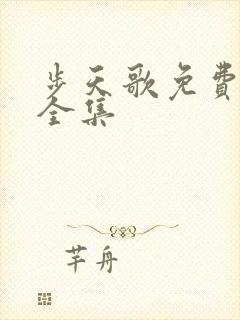 步天歌免費
全集
芊舟